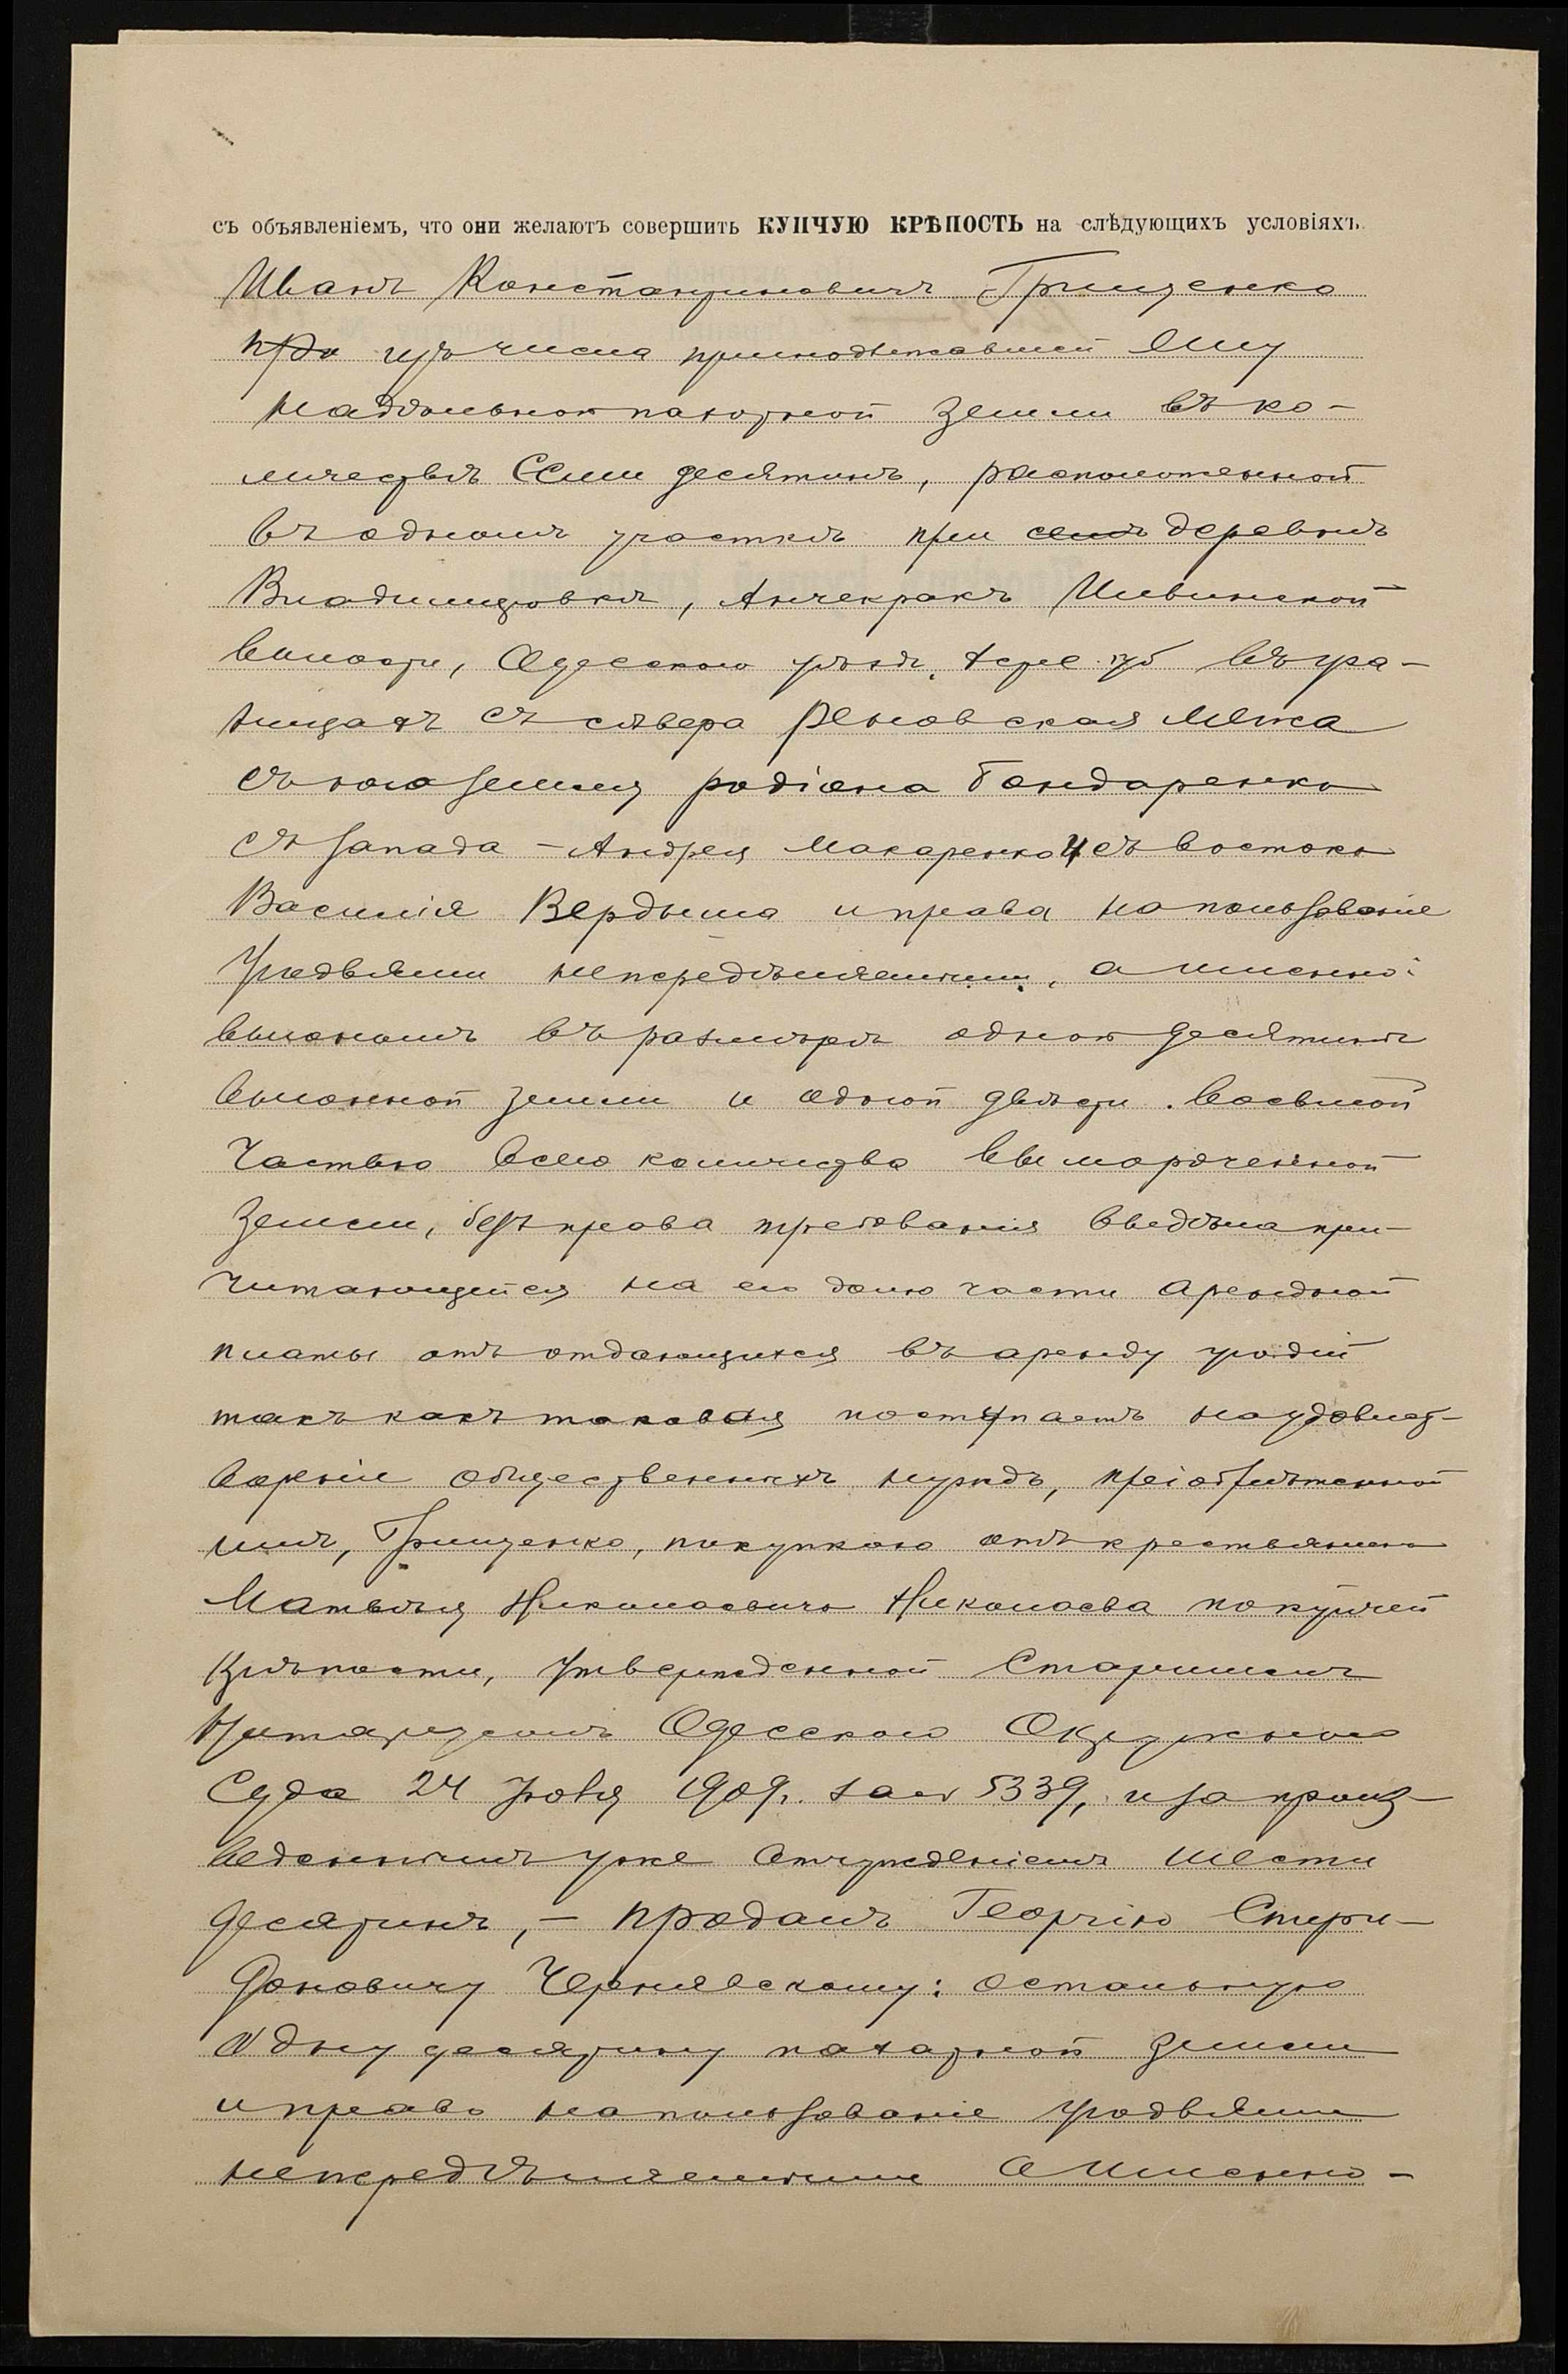 съ объявленіемъ, что они желаютъ совершить КУПЧУЮ КРѢПОСТЬ на слѣдующихъ условіяхъ.
Иванъ Константиновичъ Грищенко
изъ числа принадлежавшей ему
надѣльной пахотной земли въ ко-
личествѣ семи десятинъ, расположенной
въ одномъ участкѣ при деревнѣ
Владимировкѣ, Анчекракъ Илвинской
волости, Одесскаго уѣзд. Херс. губ въ гра-
ницахъ съ сѣвера Реновская межа
съ юга земля Родіона Бондаренко
съ запада – Андрея Макаренко и съ востока
Василія Вердыша и права на пользованіе
угодьями непередѣляемыми, а именно:
выгономъ въ размѣрѣ одной десятины
выгонной земли и одной двѣсти восьмой
частью всего количества вымороченной
земли, безъ права требованія выдѣла при-
читающейся на его долю части арендной
платы отъ отдающихся въ аренду угодій
такъ какъ таковая поступаетъ на удовлет-
вореніе общественныхъ нуждъ, пріобрѣтенной
имъ, Грищенко, покупкою отъ крестьянина
Матвѣя Николаевича Николаева по купчей
крѣпости, утвержденной Старшимъ
Нотаріусомъ Одесскаго Окружнаго
Суда 24 1909г. за № 5339, и за произ-
веденнымъ уже отчужденіемъ шести
десятинъ, – продалъ Георгію Спири-
доновичу Чернявскому: остальную
одну десятину пахатной земли
и право на пользованіе угодьями
непередѣляемыми а именно –